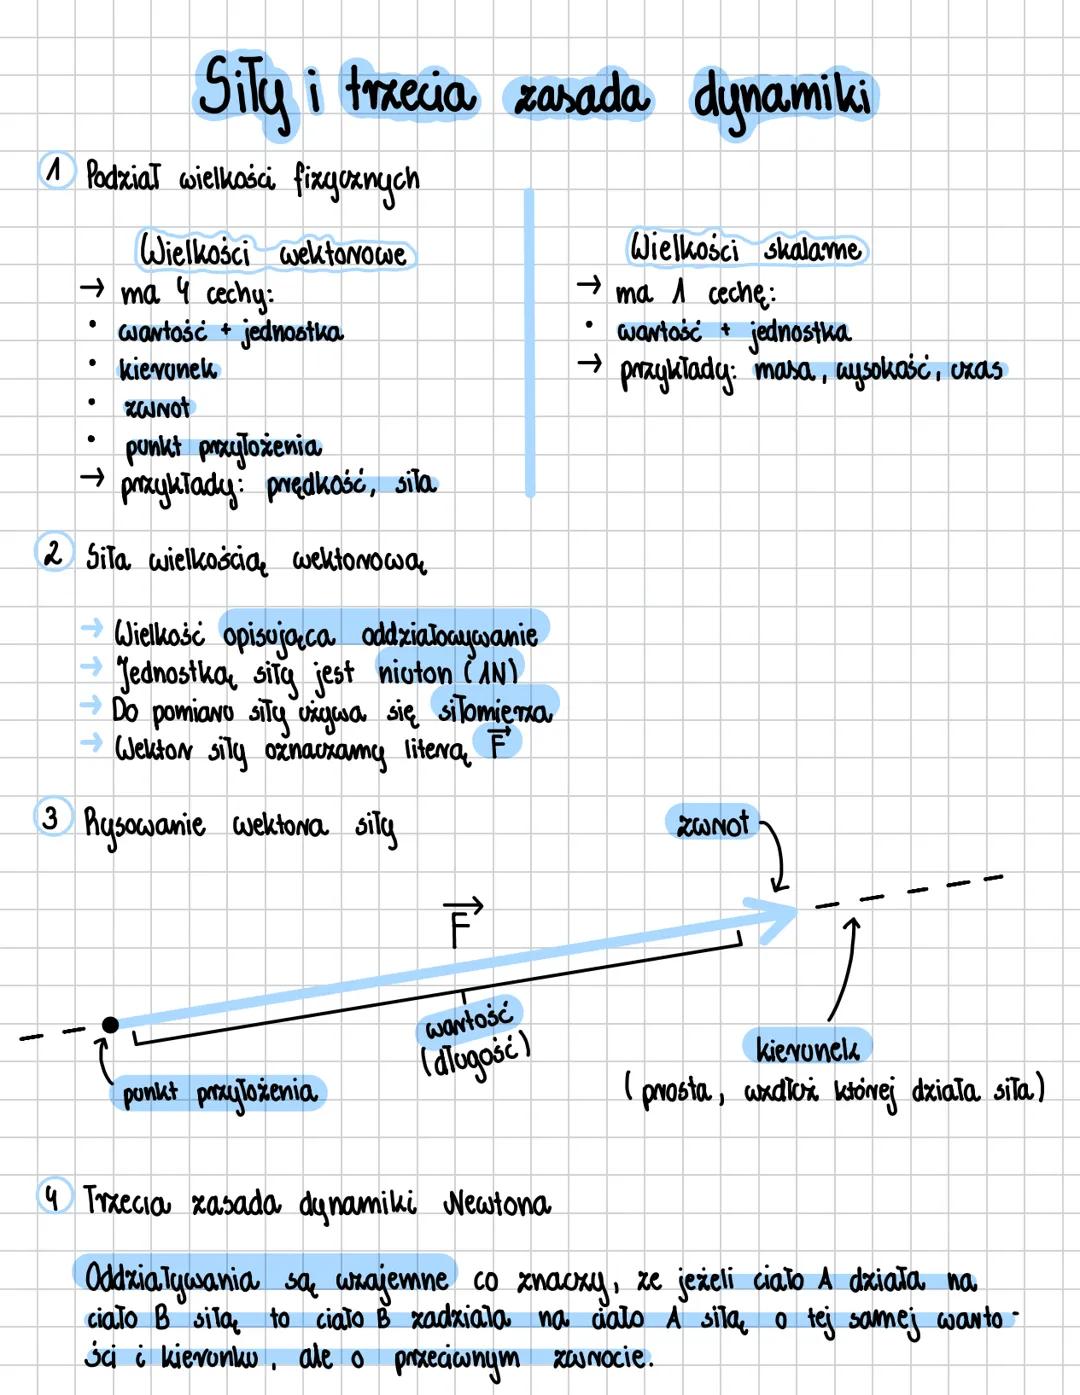 Siły i trzecia zasada dynamiki
1 Podział wielkości fizycznych
Wielkości wektorowe
→ ma 4 cechy:
• wartość + jednostka
• kierunek
• zwrot
• punkt przyłożenia
→ przykłady: prędkość, siła
Wielkości skalarne
→ ma 1 cechę:
• wartość + jednostka
→ przykłady: masa, wysokość, czas
2 Siła wielkością wektorową
→ Wielkość opisująca oddziałowywanie
→ Jednostką siły jest niuton (1N)
→ Do pomiaru siły używa się siłomierza
→ Wektor siły oznaczamy literą F⃗
3 Rysowanie wektora siły
zwrot
F⃗
wartość
(długość)
kierunek
(prosta, wzdłuż której działa siła)
punkt przyłożenia
4 Trzecia zasada dynamiki Newtona
Oddziaływania są wzajemne co znaczy, że jeżeli ciało A działa na
ciało B siłą to ciało B zadziała na ciało A siłą o tej samej warto-
ści i kierunku, ale o przeciwnym zwrocie.